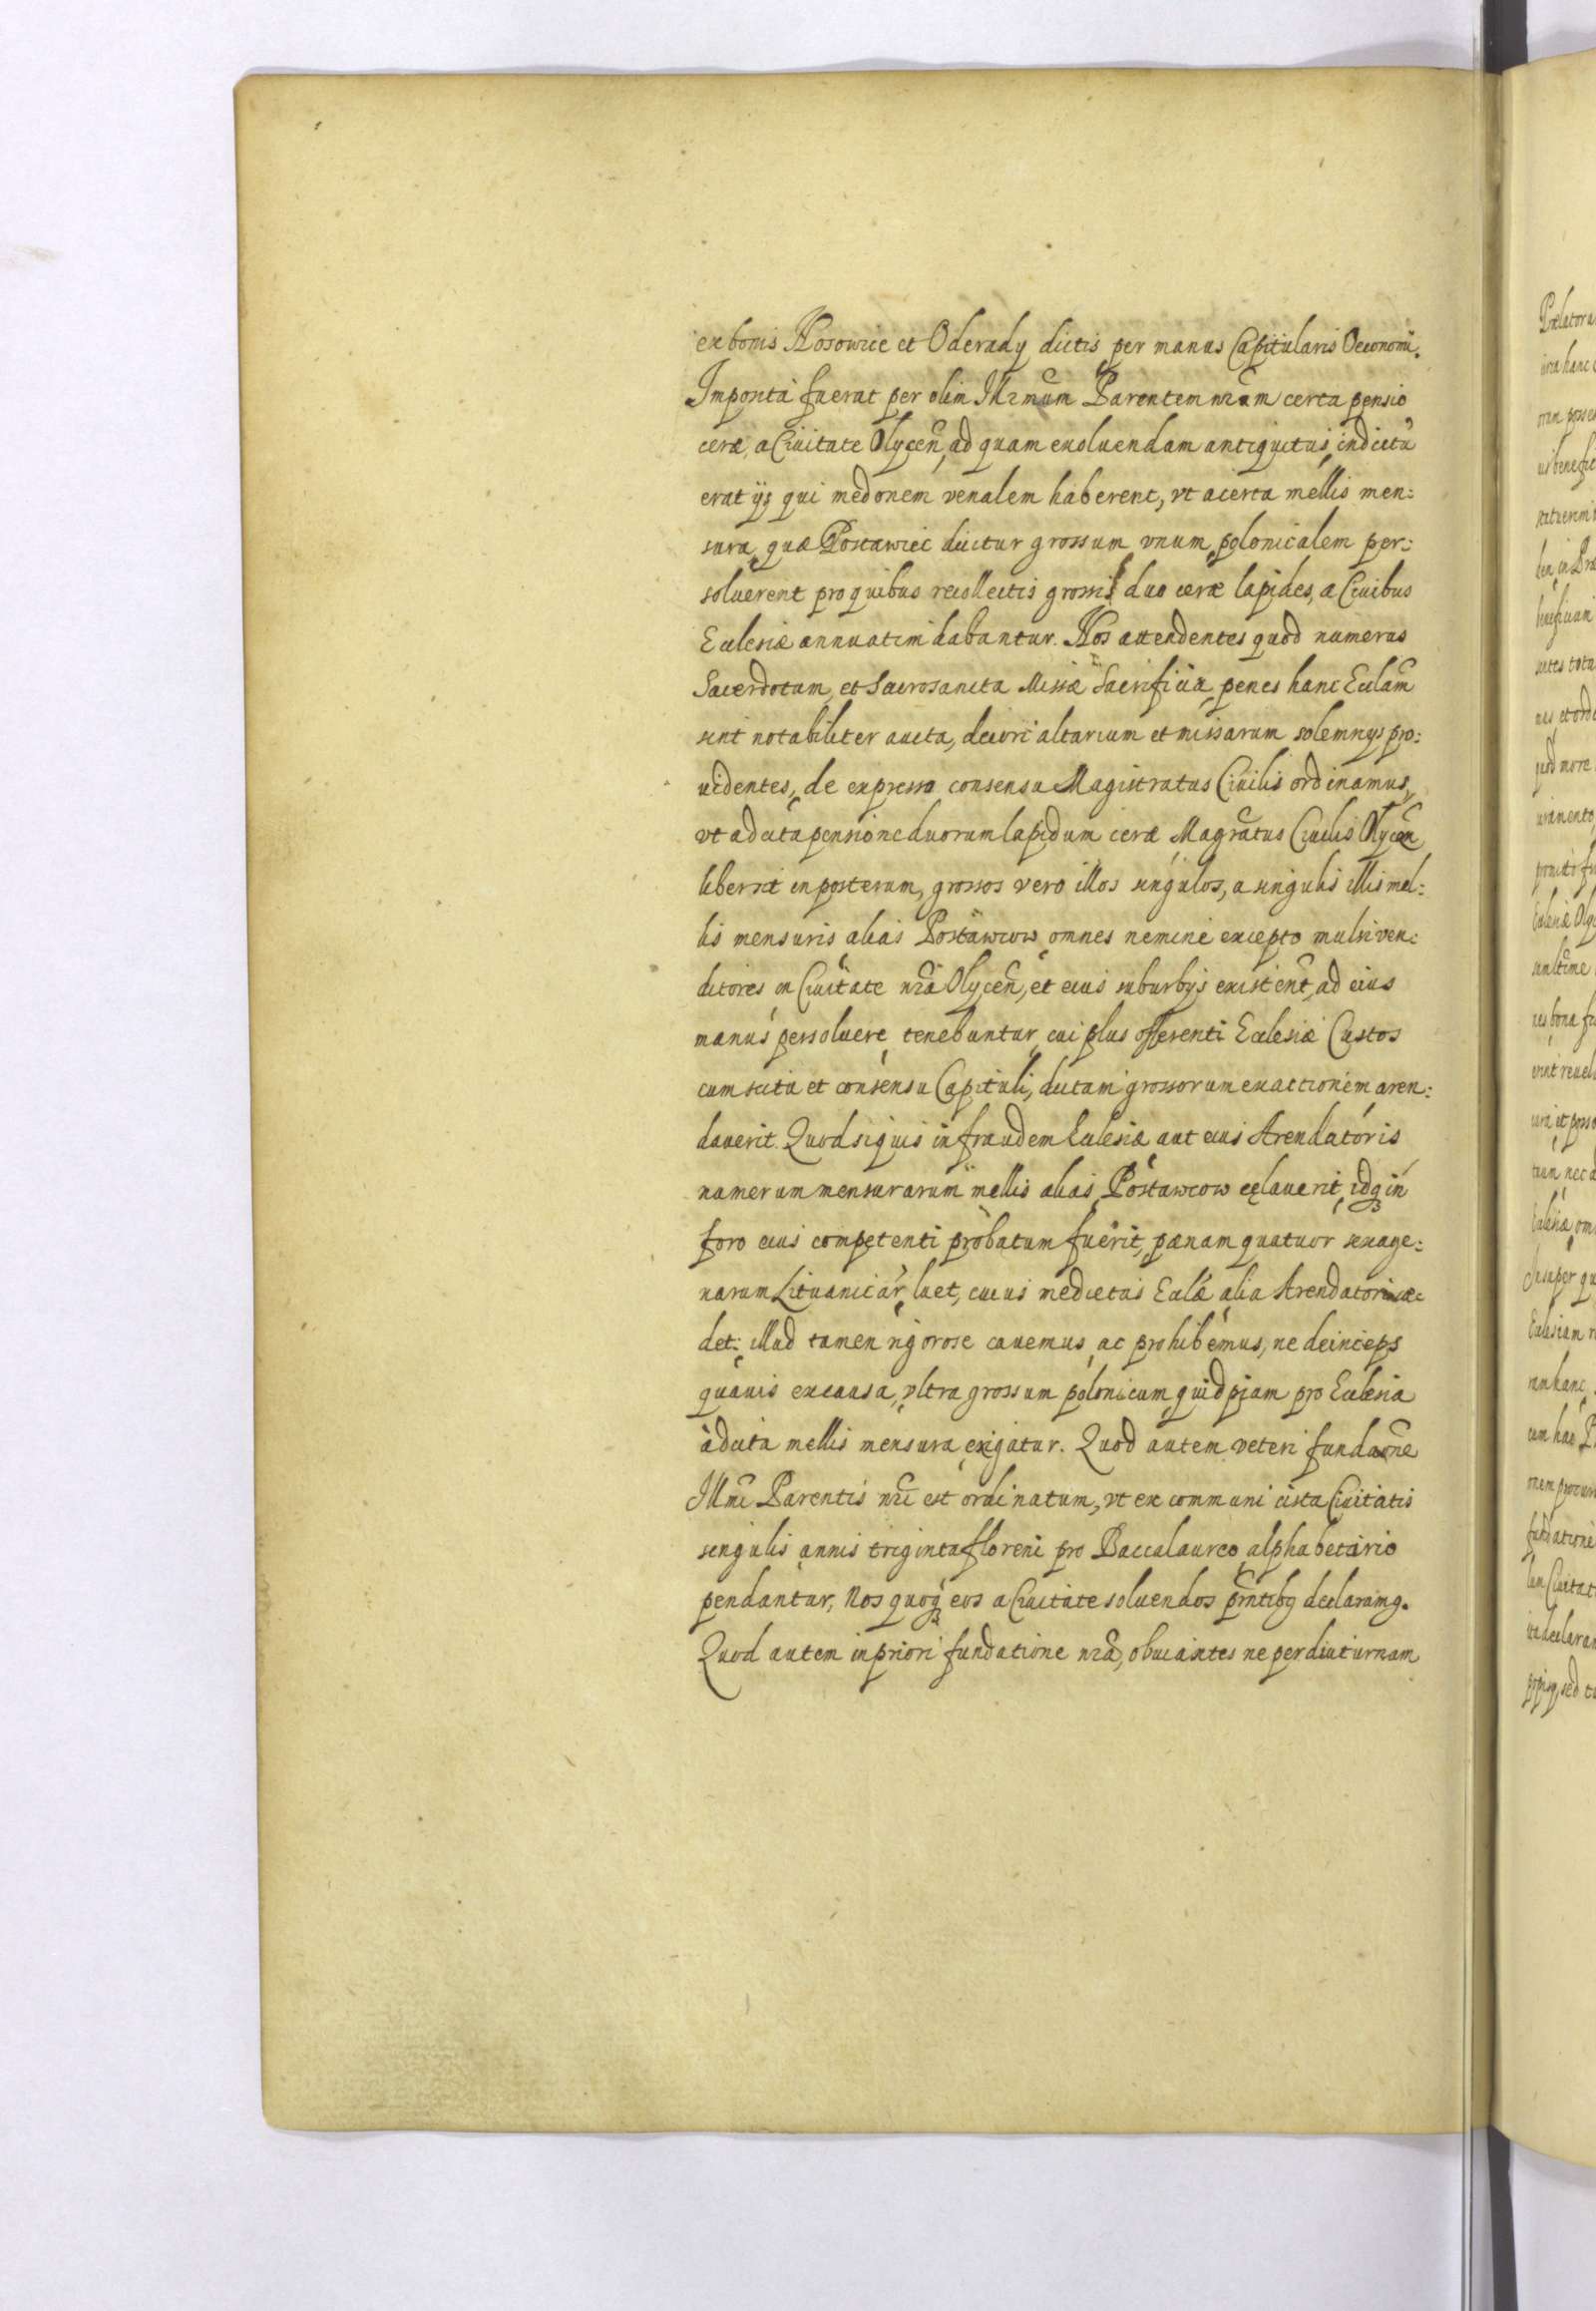 ex bonis Nosowice et Oderady dictis per manus Capitularis Oeconomi.
Imposita fuerat per olim Illrmum Parentem nrum certa pensio
ceræ, a Ciuitate Olycen̄, ad quam exoluendam antiquitus indictū
erat ijs qui medonem venalem haberent, vt a certa mellis men:
sura, quæ Postawiec dicitur grossum vnum polonicalem per:
soluerent pro quibus recollectis grossis duo ceræ lapides, a Ciuibus
Ecclesiæ annuatim dabantur. Nos attendentes quod numerus
Sacerdotum, et Sacrosancta Missæ Sacrificia, penes hanc Ecclam̄
sint notabiliter aucta, decori altarium et missarum solemnijs pro:
uidentes, de expresso consensu Magistratus Ciuilis ordinamus,
vt a dicta pensione duorum lapidum ceræ Magrātus Ciuilis Olycen̄
liber sit in posterum, grossos vero illos singulos, a singulis illis mel:
lis mensuris alias Postawcow omnes nemine excepto mulsi ven:
ditores in Ciuitate nrā Olycen̄, et eius suburbijs existen̄t, ad eius
manus persoluere tenebuntur cui plus offerenti Ecclesiæ Custos
cum scitu et consensu Capituli, dictam grossorum exactionem aren:
dauerit. Quod si quis in fraudem Ecclesiæ aut eius Arendatoris
numerum mensurarum mellis alias Postawcow celauerit, idq̨ in
foro eius competenti probatum fuerit, pœnam quatuor sexage:
narum Lituanicār luet, cuius medietas Ecclæ alia Arendatori ac:
det: illud tamen rigorose cauemus, ac prohibemus, ne deinceps
quauis ex causa, vltra grossum polonicum quidpiam pro Ecclesia
a dicta mellis mensura exigatur. Quod autem veteri fundaōne
Illmī Parentis nrī est ordinatum, vt ex communi cista Ciuitatis
singulis annis triginta floreni pro Baccalaureo alphabetario
pendantur, Nos quoq̨ eos a Ciuitate soluendos prn̄tibg declaramg.
Quod autem in priori fundatione nrā, obuiantes ne per diuturnam